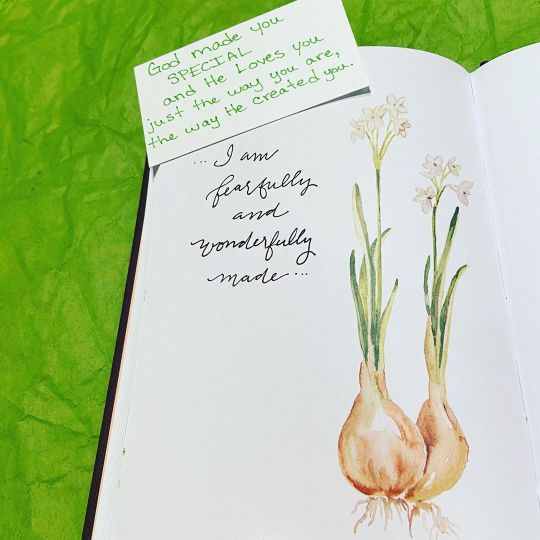 God made you
SPECIAL
and He Loves you
just the way you are,
the way He created you.
... I am
fearfully
and
wonderfully
made ...